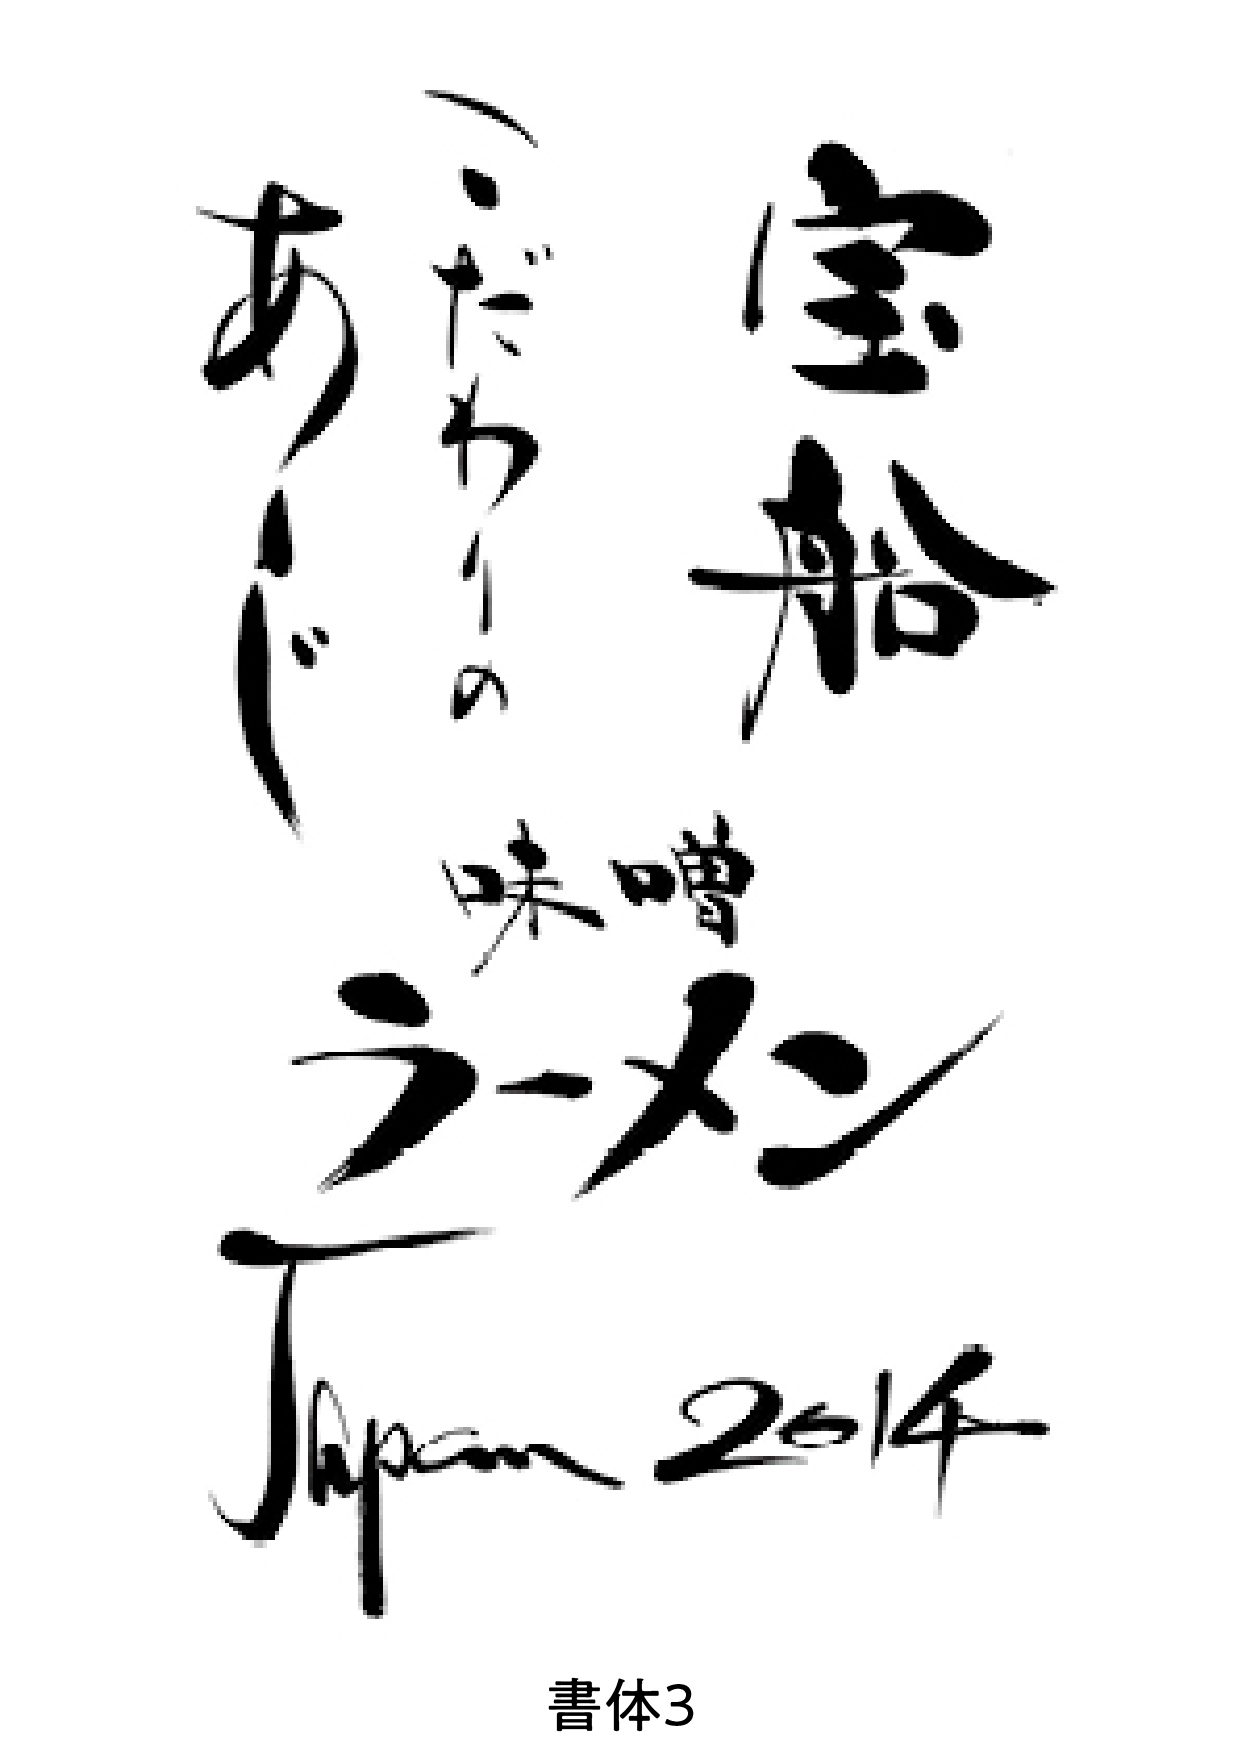 宝船
こだわりの
あじ
味噌
ラーメン
Japan 2014
書体3